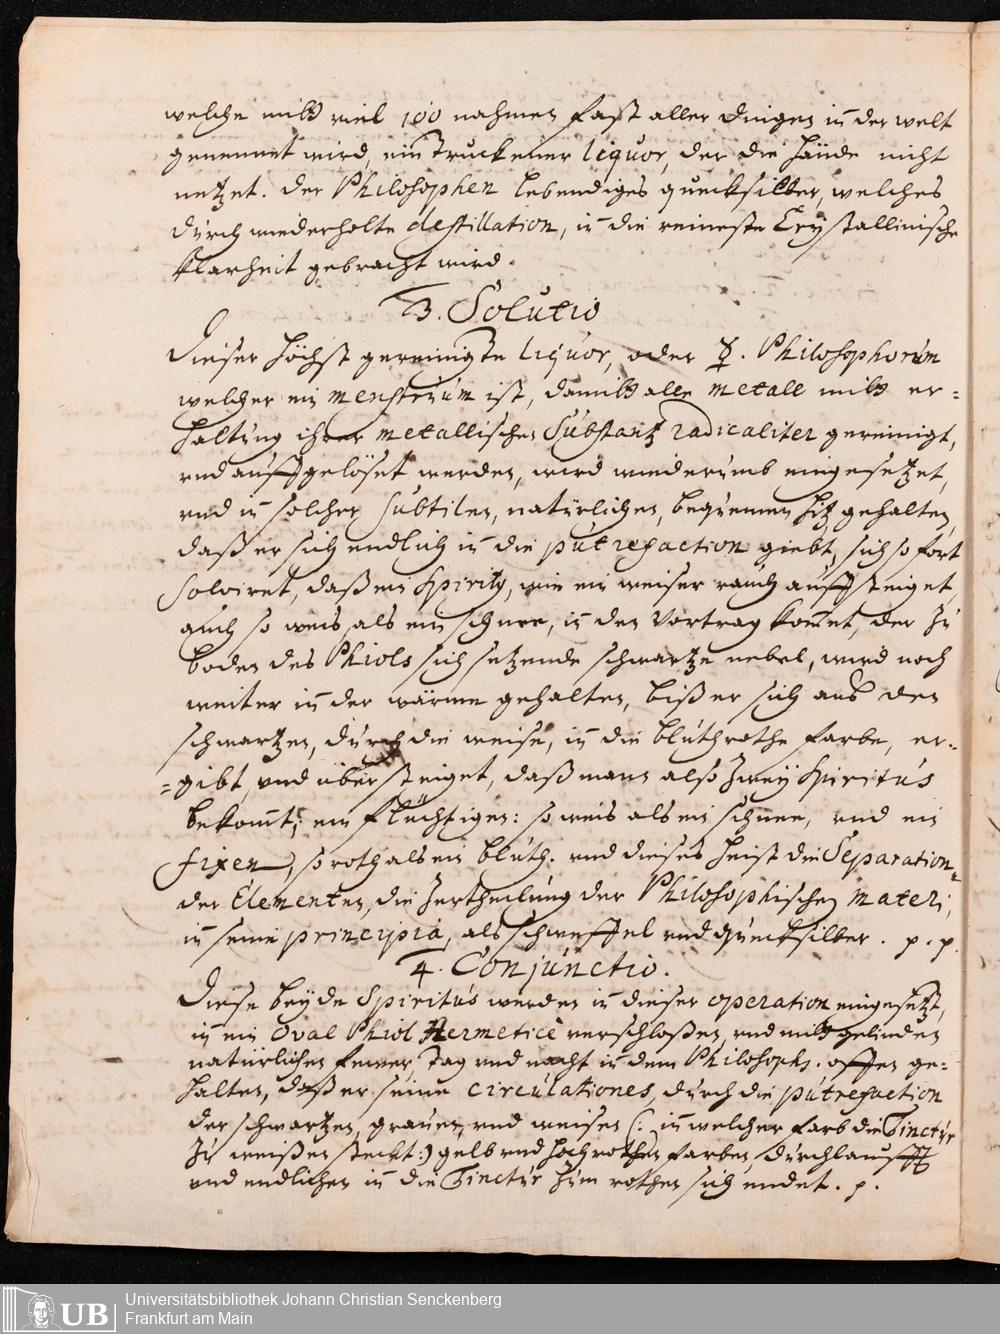 welche mitt viel 100 nahmen fast aller dingen in der welt
genennet wird, ein Truckener liquor, der die hände nicht
netzet. der Philosophen lebendiges quecksilber, welches
durch wiederholte destillation, in die reineste Crystallinische
Klarheit gebracht wird.
3. Solutio
Dieser höchst gereinigte liquor, oder ☿. Philosophorum
welcher ein menstruum ist, damitt alle metall mitt er=
haltung ihrer metallischen Substantz radicaliter gereinigt,
und auffgelöset werden, wird wiederumb eingesetzet,
und in solcher subtilen, natürlichen, bequemen hitz gehalten,
daß er sich endlich in die putrefaction giebt, sich so fort
solviret, daß ein spiritus, wie ein weiser rauch auffsteiget,
auch so weis, als ein schnee, in den Vortrag komet, der zu
boden des Phiols sich setzende schwartze nebel, wird noch
weiter in der wärme gehalten, biß er sich aus der
schwartzen, durch die weise, in die bluthrothe farbe, er=
=gibt, und übersteiget, daß man also zweÿ spiritus
bekomt; ein flüchtigen: so weis als ein schnee, und ein
fixen, so roth als ein bluth. und dieses heist die Separation
der Elementen, die zertheilung der Philosophischen materi,
in seine principia, als schweffel und quecksilber. p. p.
4. Conjunctio.
Diese beyde Spiritus werden in dieser operation eingesetzt,
in ein Oval Phiol Hermeticè verschloßen, und mitt gelinden
natürlichen fewer, Tag und nacht in dem Philosoph. offen ge=
halten, daß er seine circulationes, durch die putrefaction
der schwartzen, grauen, und weisen (: in welcher farb die Tinctur
zu weißen steckt:) gelb und hochrothen farben, durchlauff
und endlichen in die Tinctur zum rothen sich endet. p.
Universitätsbibliothek Johann Christian Senckenberg
Frankfurt am Main
UB